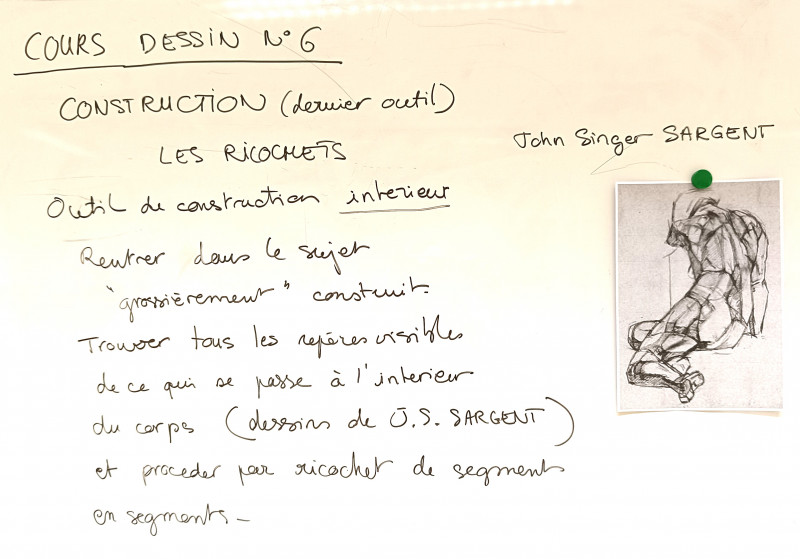 COURS DESSIN N°6
CONSTRUCTION (dernier outil)
LES RICOCHETS
John Singer SARGENT
Outil de construction interieur
Rentrer dans le sujet
"grossièrement" construit.
Trouver tous les repères visibles
de ce qui se passe à l'interieur
du corps (dessins de J.S. SARGENT)
et proceder par ricochet de segments
en segments_